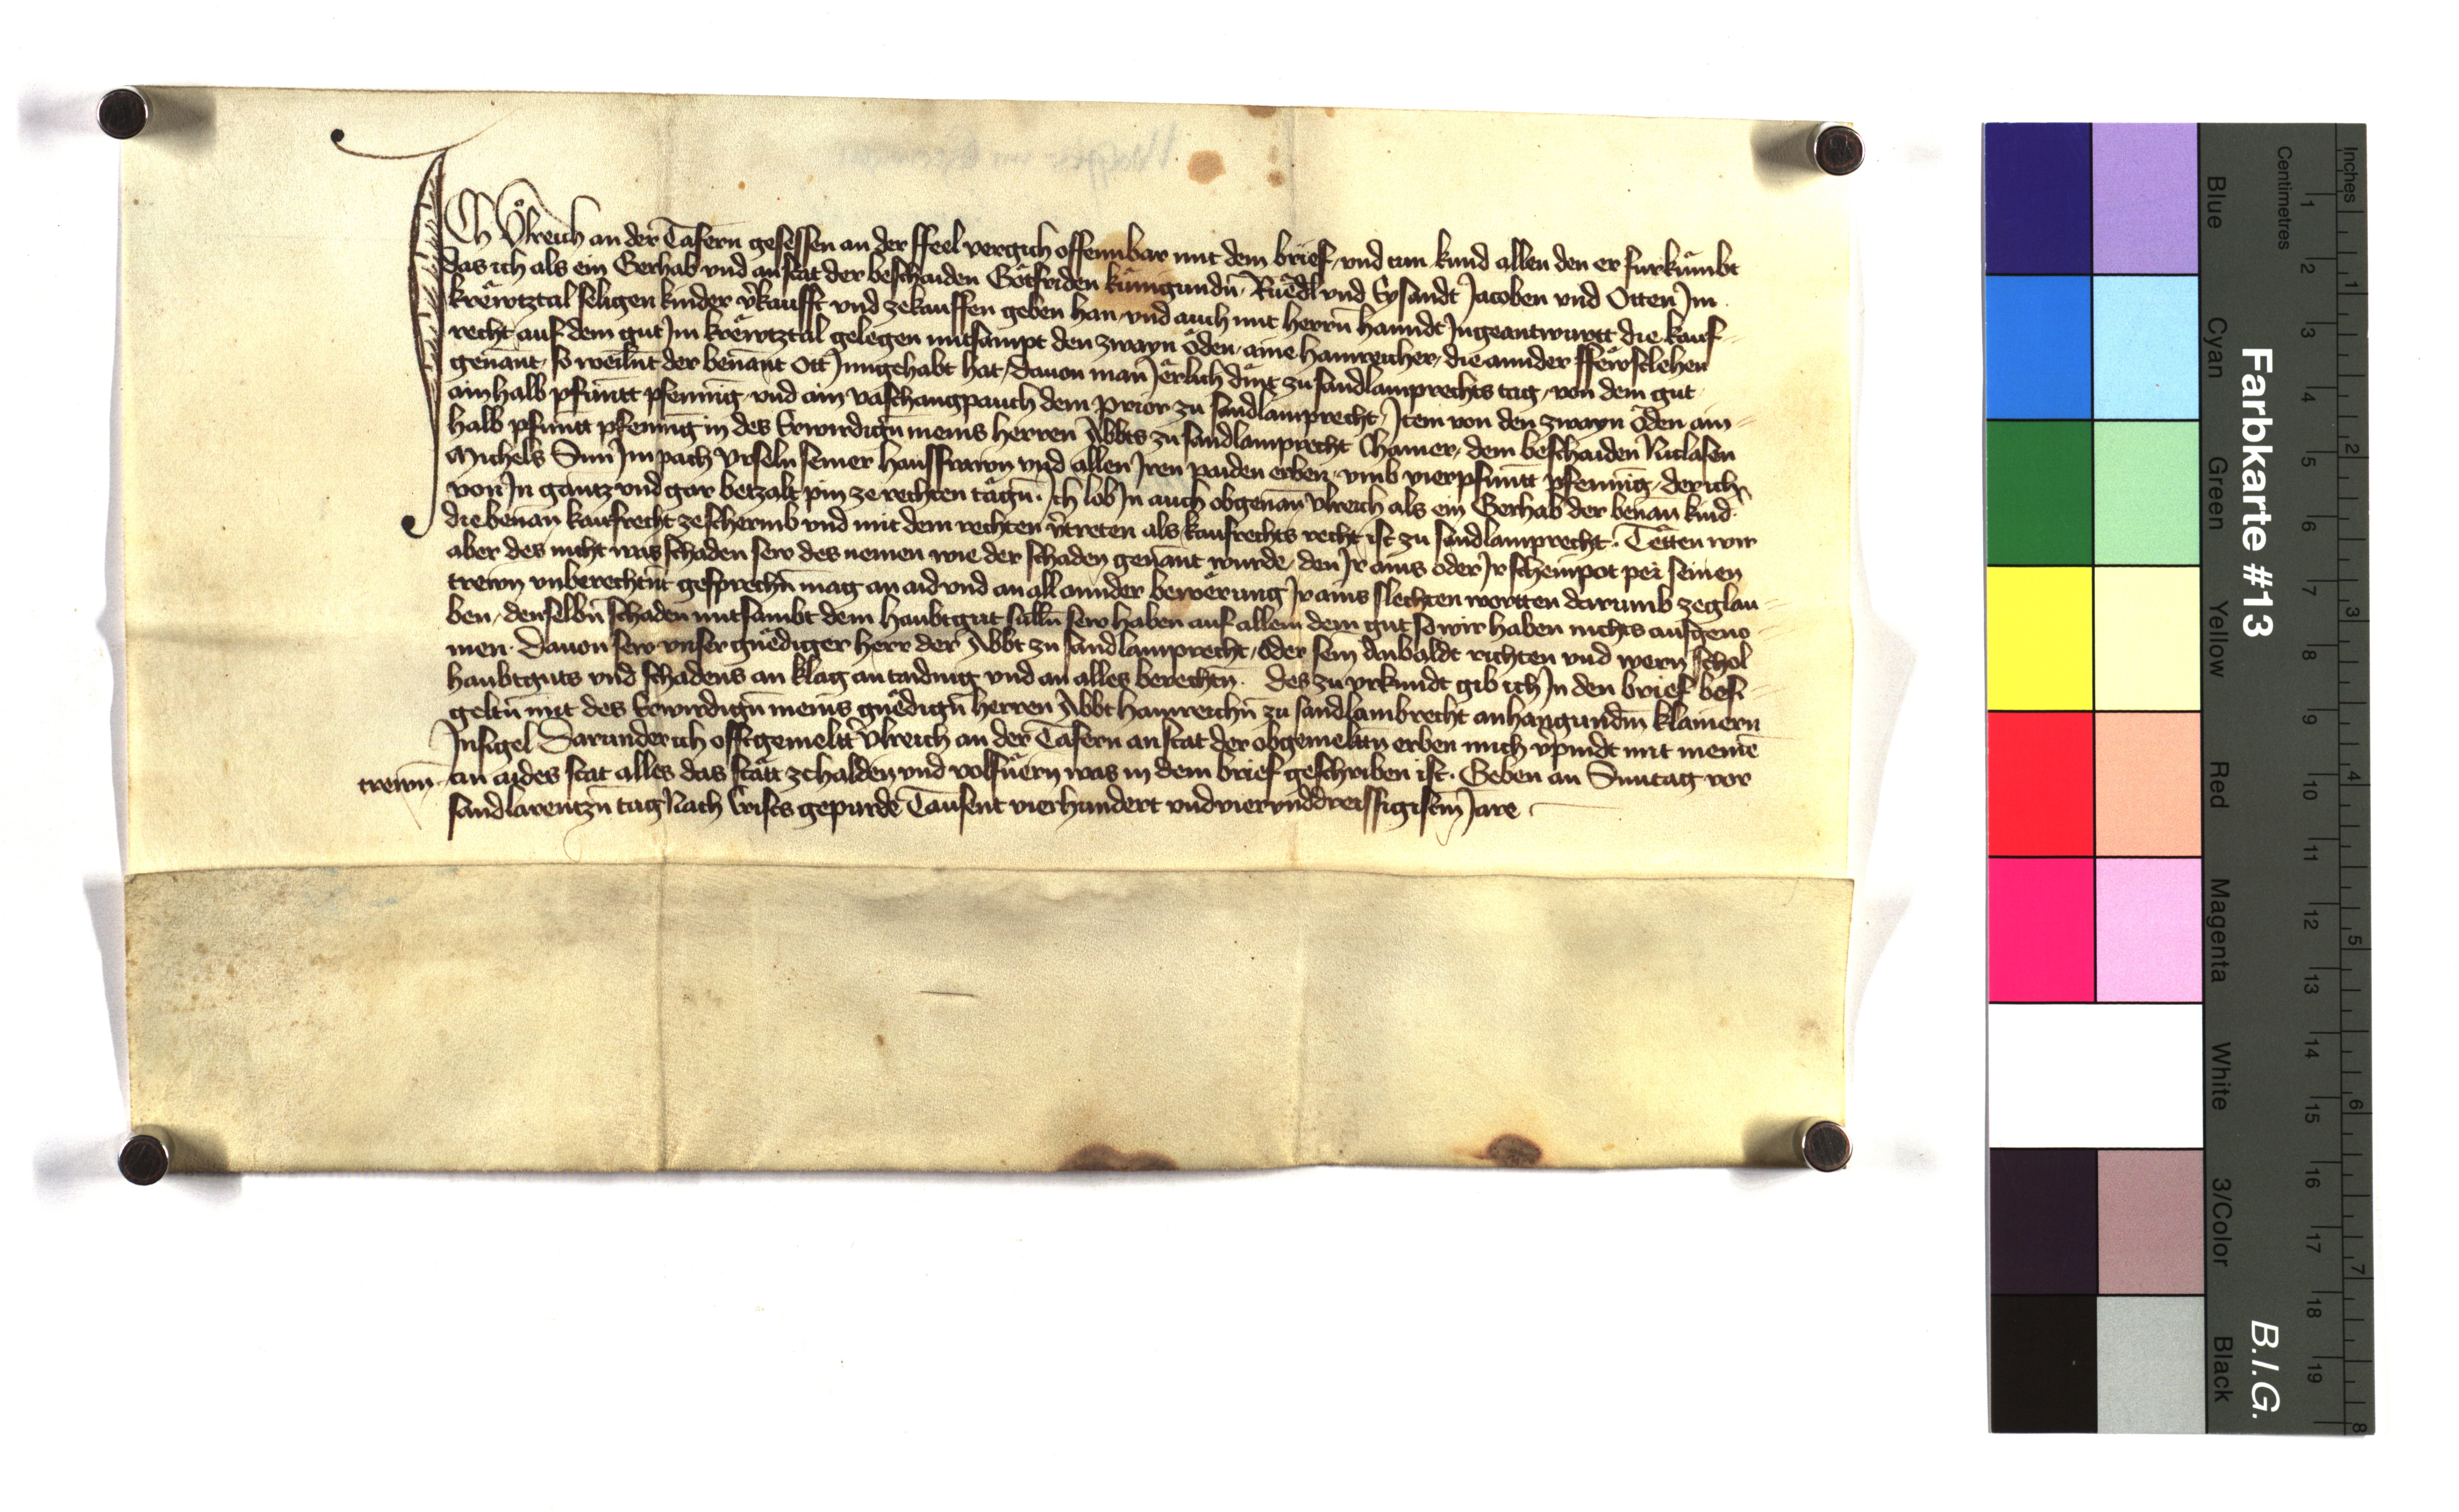 ICh Ůlreich an der Tafern gesessen an der ffeel vergich offennbar mit dem brief, vnd tun kund allen den er furkůmbt
das ich als ein Gerhab vnd anstat der beschaiden Gôtfriden kůnigundn̄, Ruēdl vnd Eysandt Jacoben vnd Otten Jm
krêwtztal seligen kinder v̄kaufft vnd zekauffen geben han, vnd auch mit herrn̄ hanndt Jngeantwurtt die kauf-
recht auf dem gut Jm krêwtztal gelegen mitsampt den zwayn ôden, aine hainreicher, die annder ffêwstlehen
genant, so weiln̄t der benant Ott Jnngehabt hat, dauon man Jêrlich dīnt zu sandlamprechts tag, von dem gut
ain halb pfuntt pfenning, vnd ain vaschangpauch dem prior zu sandlamprecht, Jtem von den zwayn ôden ain
halb pfuntt pfenning in des Erwirdign̄ meins herren Abbts zu sandlamprecht Chamer, dem beschaiden Niclasen
Michels Sun Jm pach Vrseln seiner hausfrawn vnd allen Jren paiden erben, vmb vier pfuntt pfenning, der ich
von Jn gantz vnd gar betzalt pin ze rechten tâgn̄. Jch lob Jn auch obgenan̄ Vlreich als ein Gerhab der benan̄ kind
die benan̄ kaufrecht zeschermb vnd mit dem rechten v̄treten als kaufrechts recht ist zu sandlamprecht. Têtten wir
aber des nicht was schaden sew des nemen wie der schaden genant wurde, den Jr ains oder Jr scheinpot pei seinen
trewn vnberechtn̄t gesprechn̄ mag an aid vnd an all annder bewêrung Jr ains slechten wortten darumb zeglau-
ben, denselbn̄ schaden mitsambt dem haubtgut sulln̄ sew haben auf allem dem gut so wir haben nichts ausgeno-
men. Dauon sew vnser gnêdiger herr der Abbt zu sandlamprecht, oder sein Anbaldt richten vnd wern schol
haubtguts vnd schadens an klag an taiding vnd an alles berechtn̄. Des zu vrkundt gib ich Jn den brief besi-
geltn̄ mit des Erwirdign̄ meins gnêdign̄ herren Abbt hainreichn̄ zu sandlambrecht anhangundm̄ klainern
Jnsigel Darunder ich offtgemeltt Vlreich an der Tafern anstat der obgemelttn̄ erben mich v̄pindt mit meinē
trewn̄ an aides stat alles das stâtt zehalden vnd volfuêrn was in dem brief geschriben ist. Geben an Suntag vor
sandlarentzn̄ tag Nach Crists gepurde Tausent vierhundert vnd vierunddreissigistm̄ Jare
Farbkarte #13
B.I.G.
Blue
Cyan
Green
Yellow
Red
Magenta
White
3/Color
Black
Centimetres
1 2 3 4 5 6 7 8 9 10 11 12 13 14 15 16 17 18 19
Inches
1 2 3 4 5 6 7 8